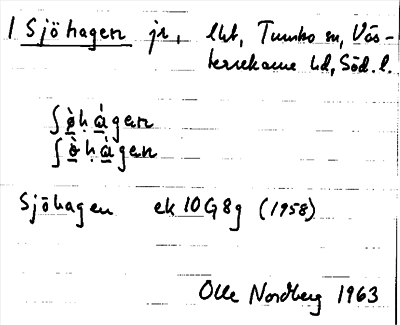 1 Sjöhagen jr, lht, Tumbo sn, Väs-
terrekarne hd, Söd. l.
ʃö̀hágen
ʃö̀hàgen
Sjöhagen ek 10G8g (1958)
Olle Nordberg 1963